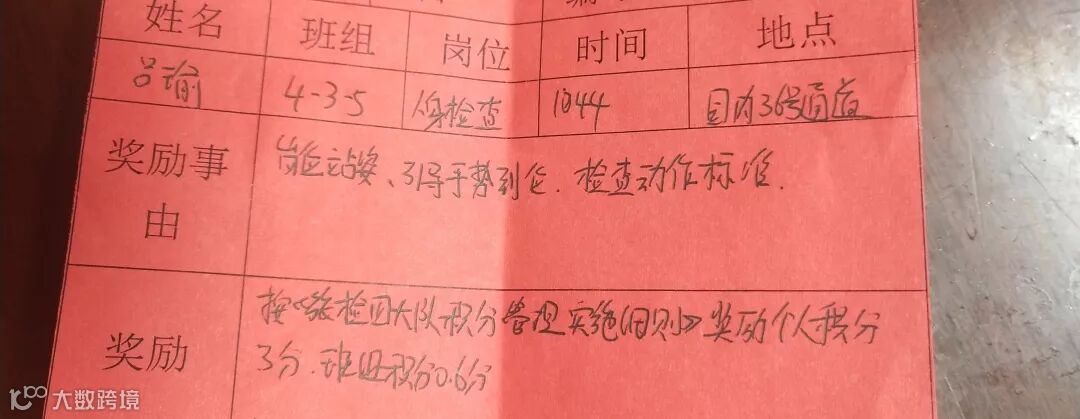 姓名 班组 岗位 时间 地点
吕瑜 4-3-5 人身检查 1044 国内36号通道
奖励事由
岗位站姿、引导手势到位.检查动作标准.
奖励
按《旅检四大队积分管理实施细则》奖励个人积分
3分.班组积分0.6分
大数跨境